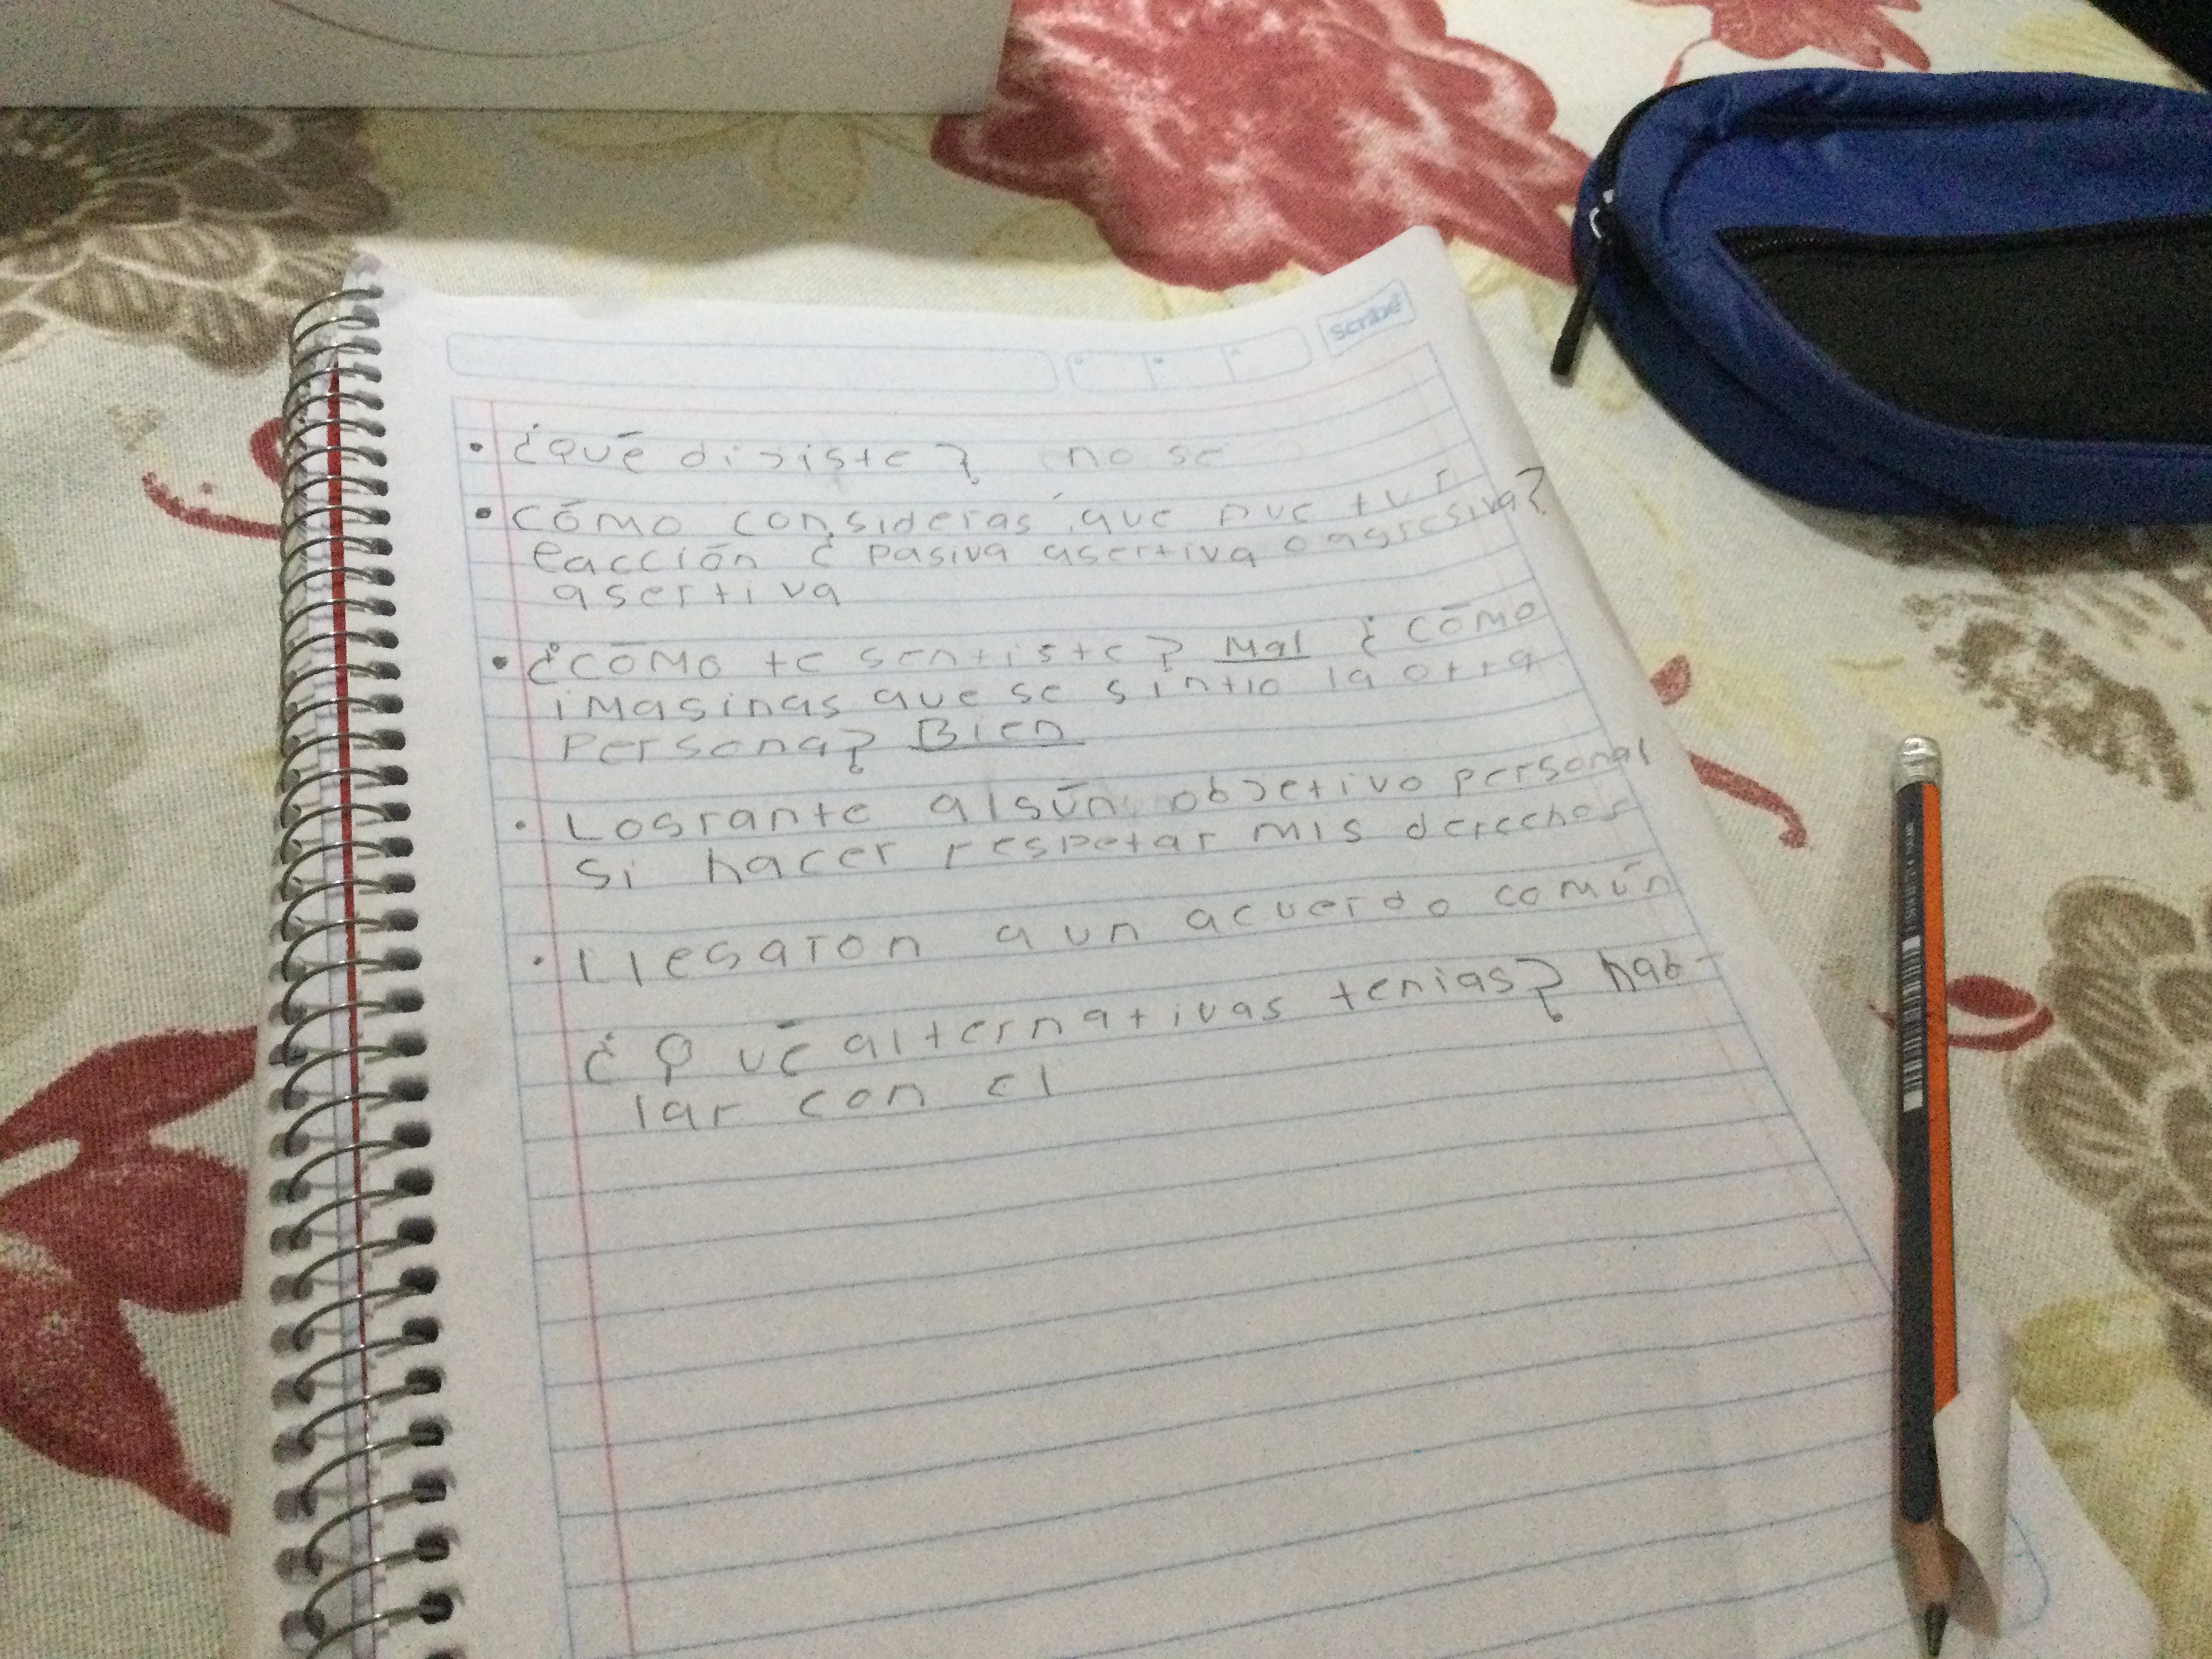 scribe
• ¿Qué disiste? no se
• cómo consideras que nue tu r
eacción ¿ pasiva asertiva o agresiva?
asertiva
• ¿cómo te sentiste? Mal ¿cómo
imaginas que se sintio la otra
persona? Bien
• Logrante algún objetivo personal
si hacer respetar mis derechos
• Llegaron a un acuerdo común
¿Qué alternativas tenias? hab-
lar con el